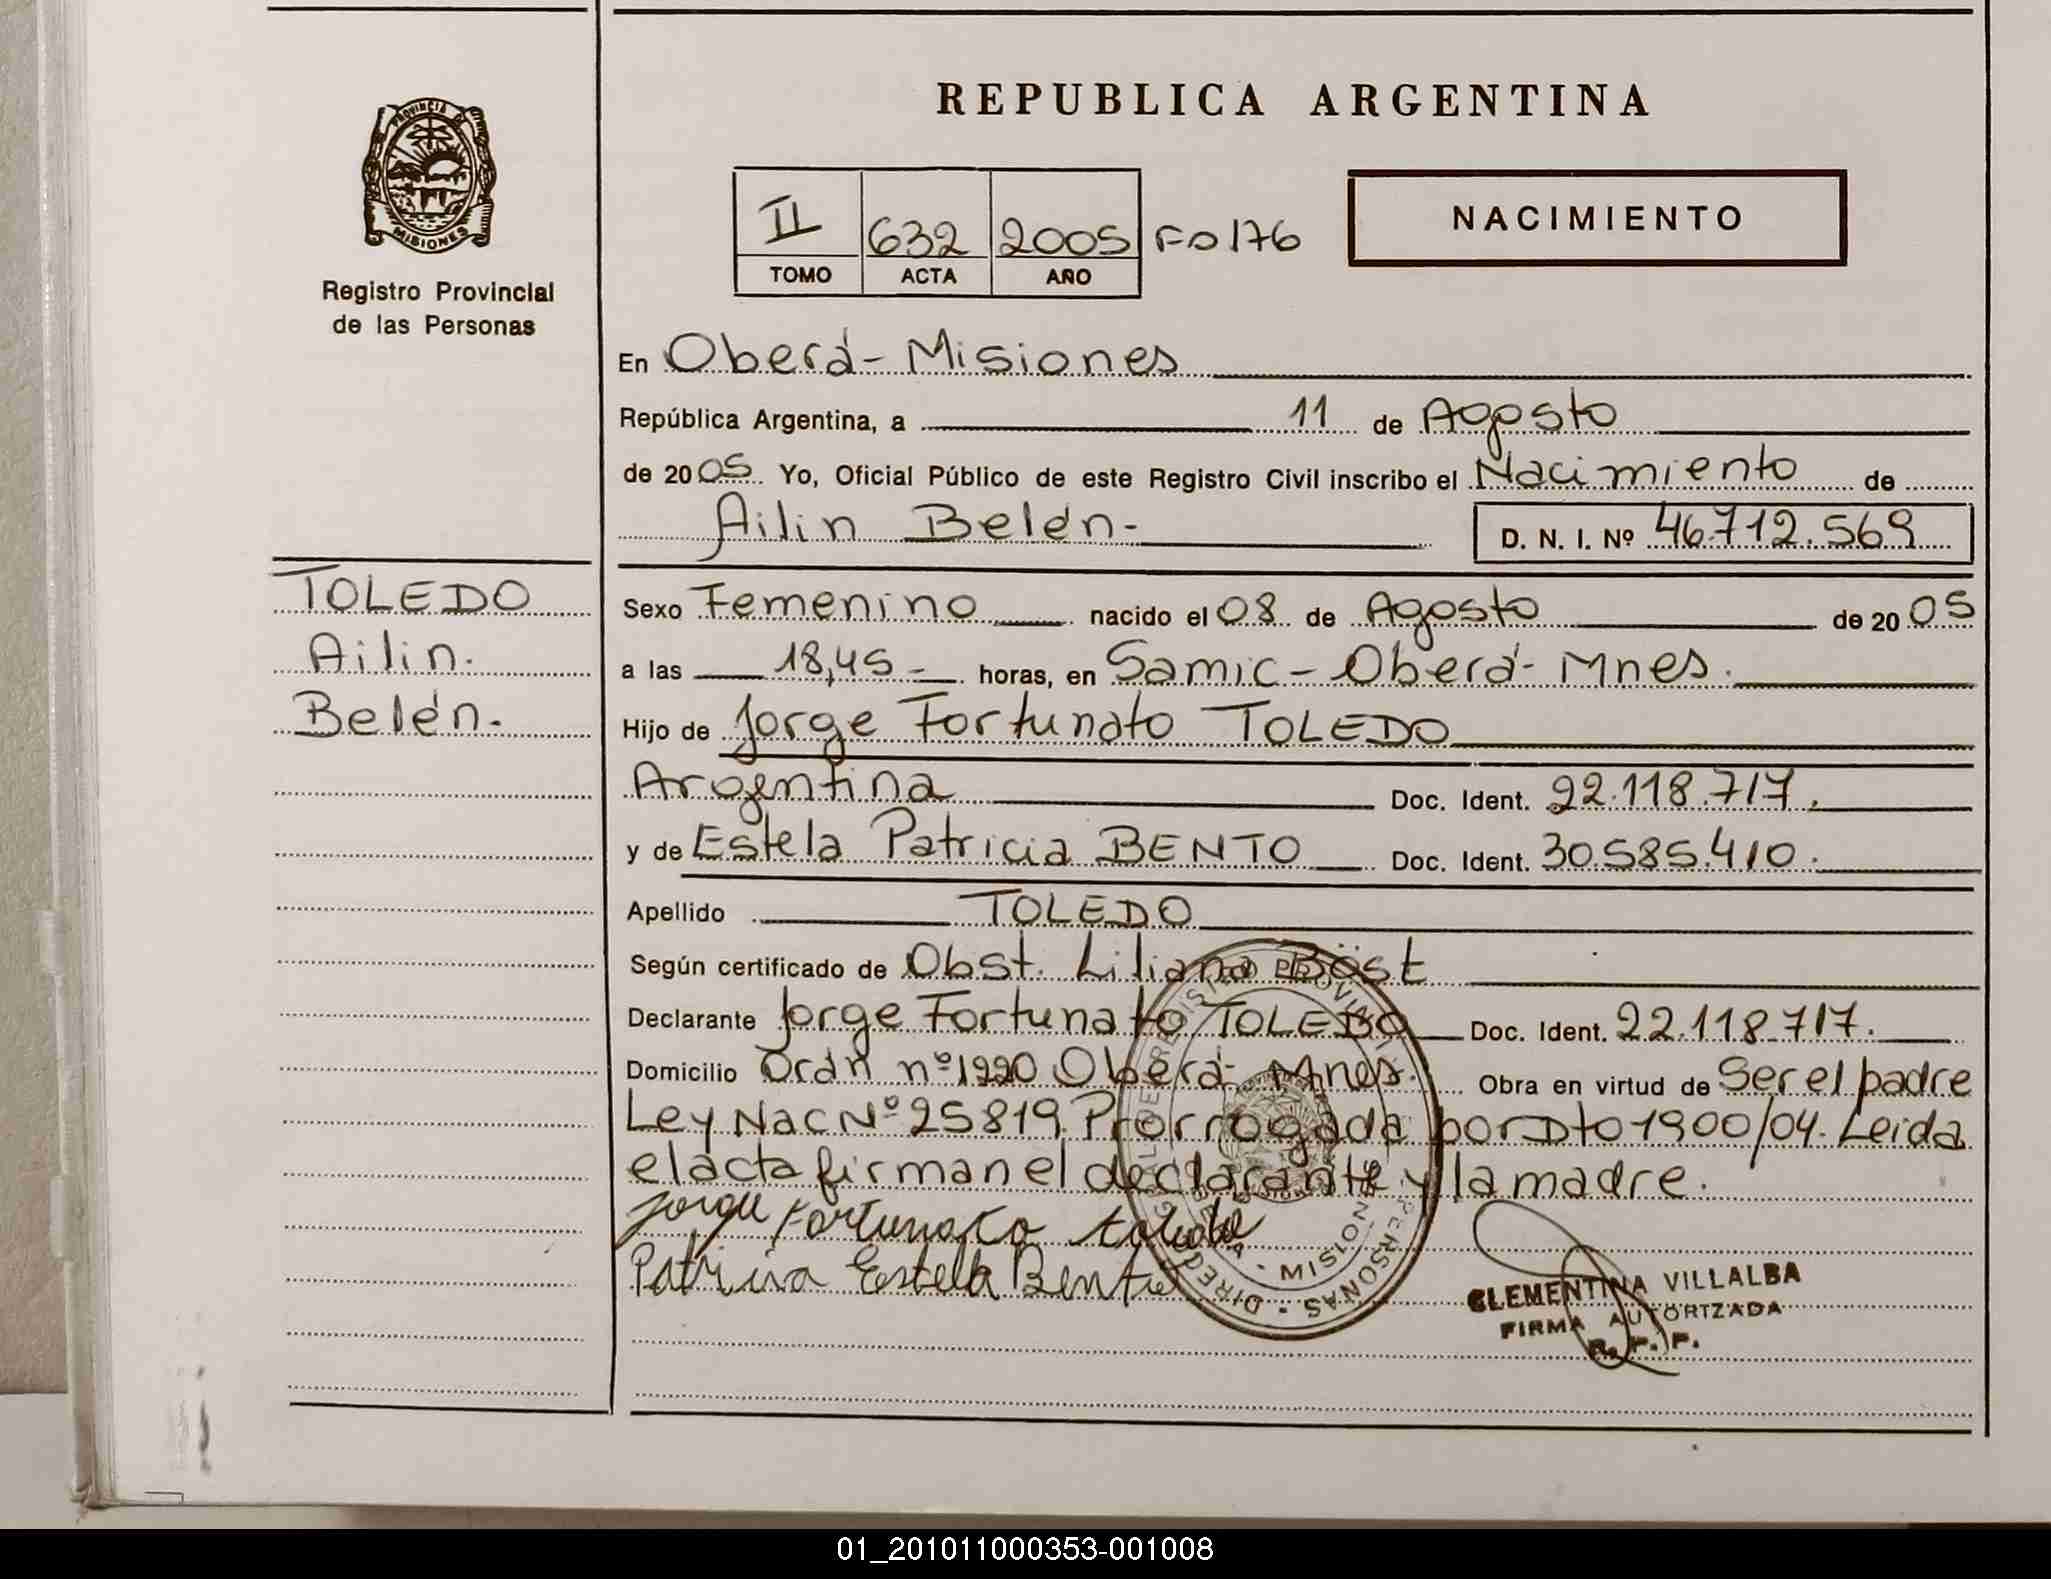 REPUBLICA ARGENTINA
PROVINCIA DE
MISIONES
Registro Provincial
de las Personas
II 632 2005 Fo 176
TOMO ACTA AÑO
NACIMIENTO
En Oberá - Misiones
República Argentina, a 11 de Agosto
de 2005. Yo, Oficial Público de este Registro Civil inscribo el Nacimiento de
Ailin Belén.-
D. N. I. Nº 46.712.569
TOLEDO
Ailin.
Belén.
Sexo Femenino nacido el 08 de Agosto de 2005
a las 18,45 horas, en Samic - Oberá - Mnes.
Hijo de Jorge Fortunato TOLEDO
Argentina Doc. Ident. 22.118.717.
y de Estela Patricia BENTO Doc. Ident. 30.585.410.
Apellido TOLEDO
Según certificado de Obst. Liliana Böst
Declarante Jorge Fortunato TOLEDO Doc. Ident. 22.118.717.
Domicilio Orán nº 1220 Oberá - Mnes. Obra en virtud de Ser el padre
Ley Nac Nº 25819. Prorrogada por Dto 1900/04. Leida
el acta firman el declarante y la madre.
Jorge Fortunato toledo
Patricia Estella Bento
MISIONES
CLEMENTINA VILLALBA
FIRMA AUTORIZADA
R. P. P.
01_201011000353-001008